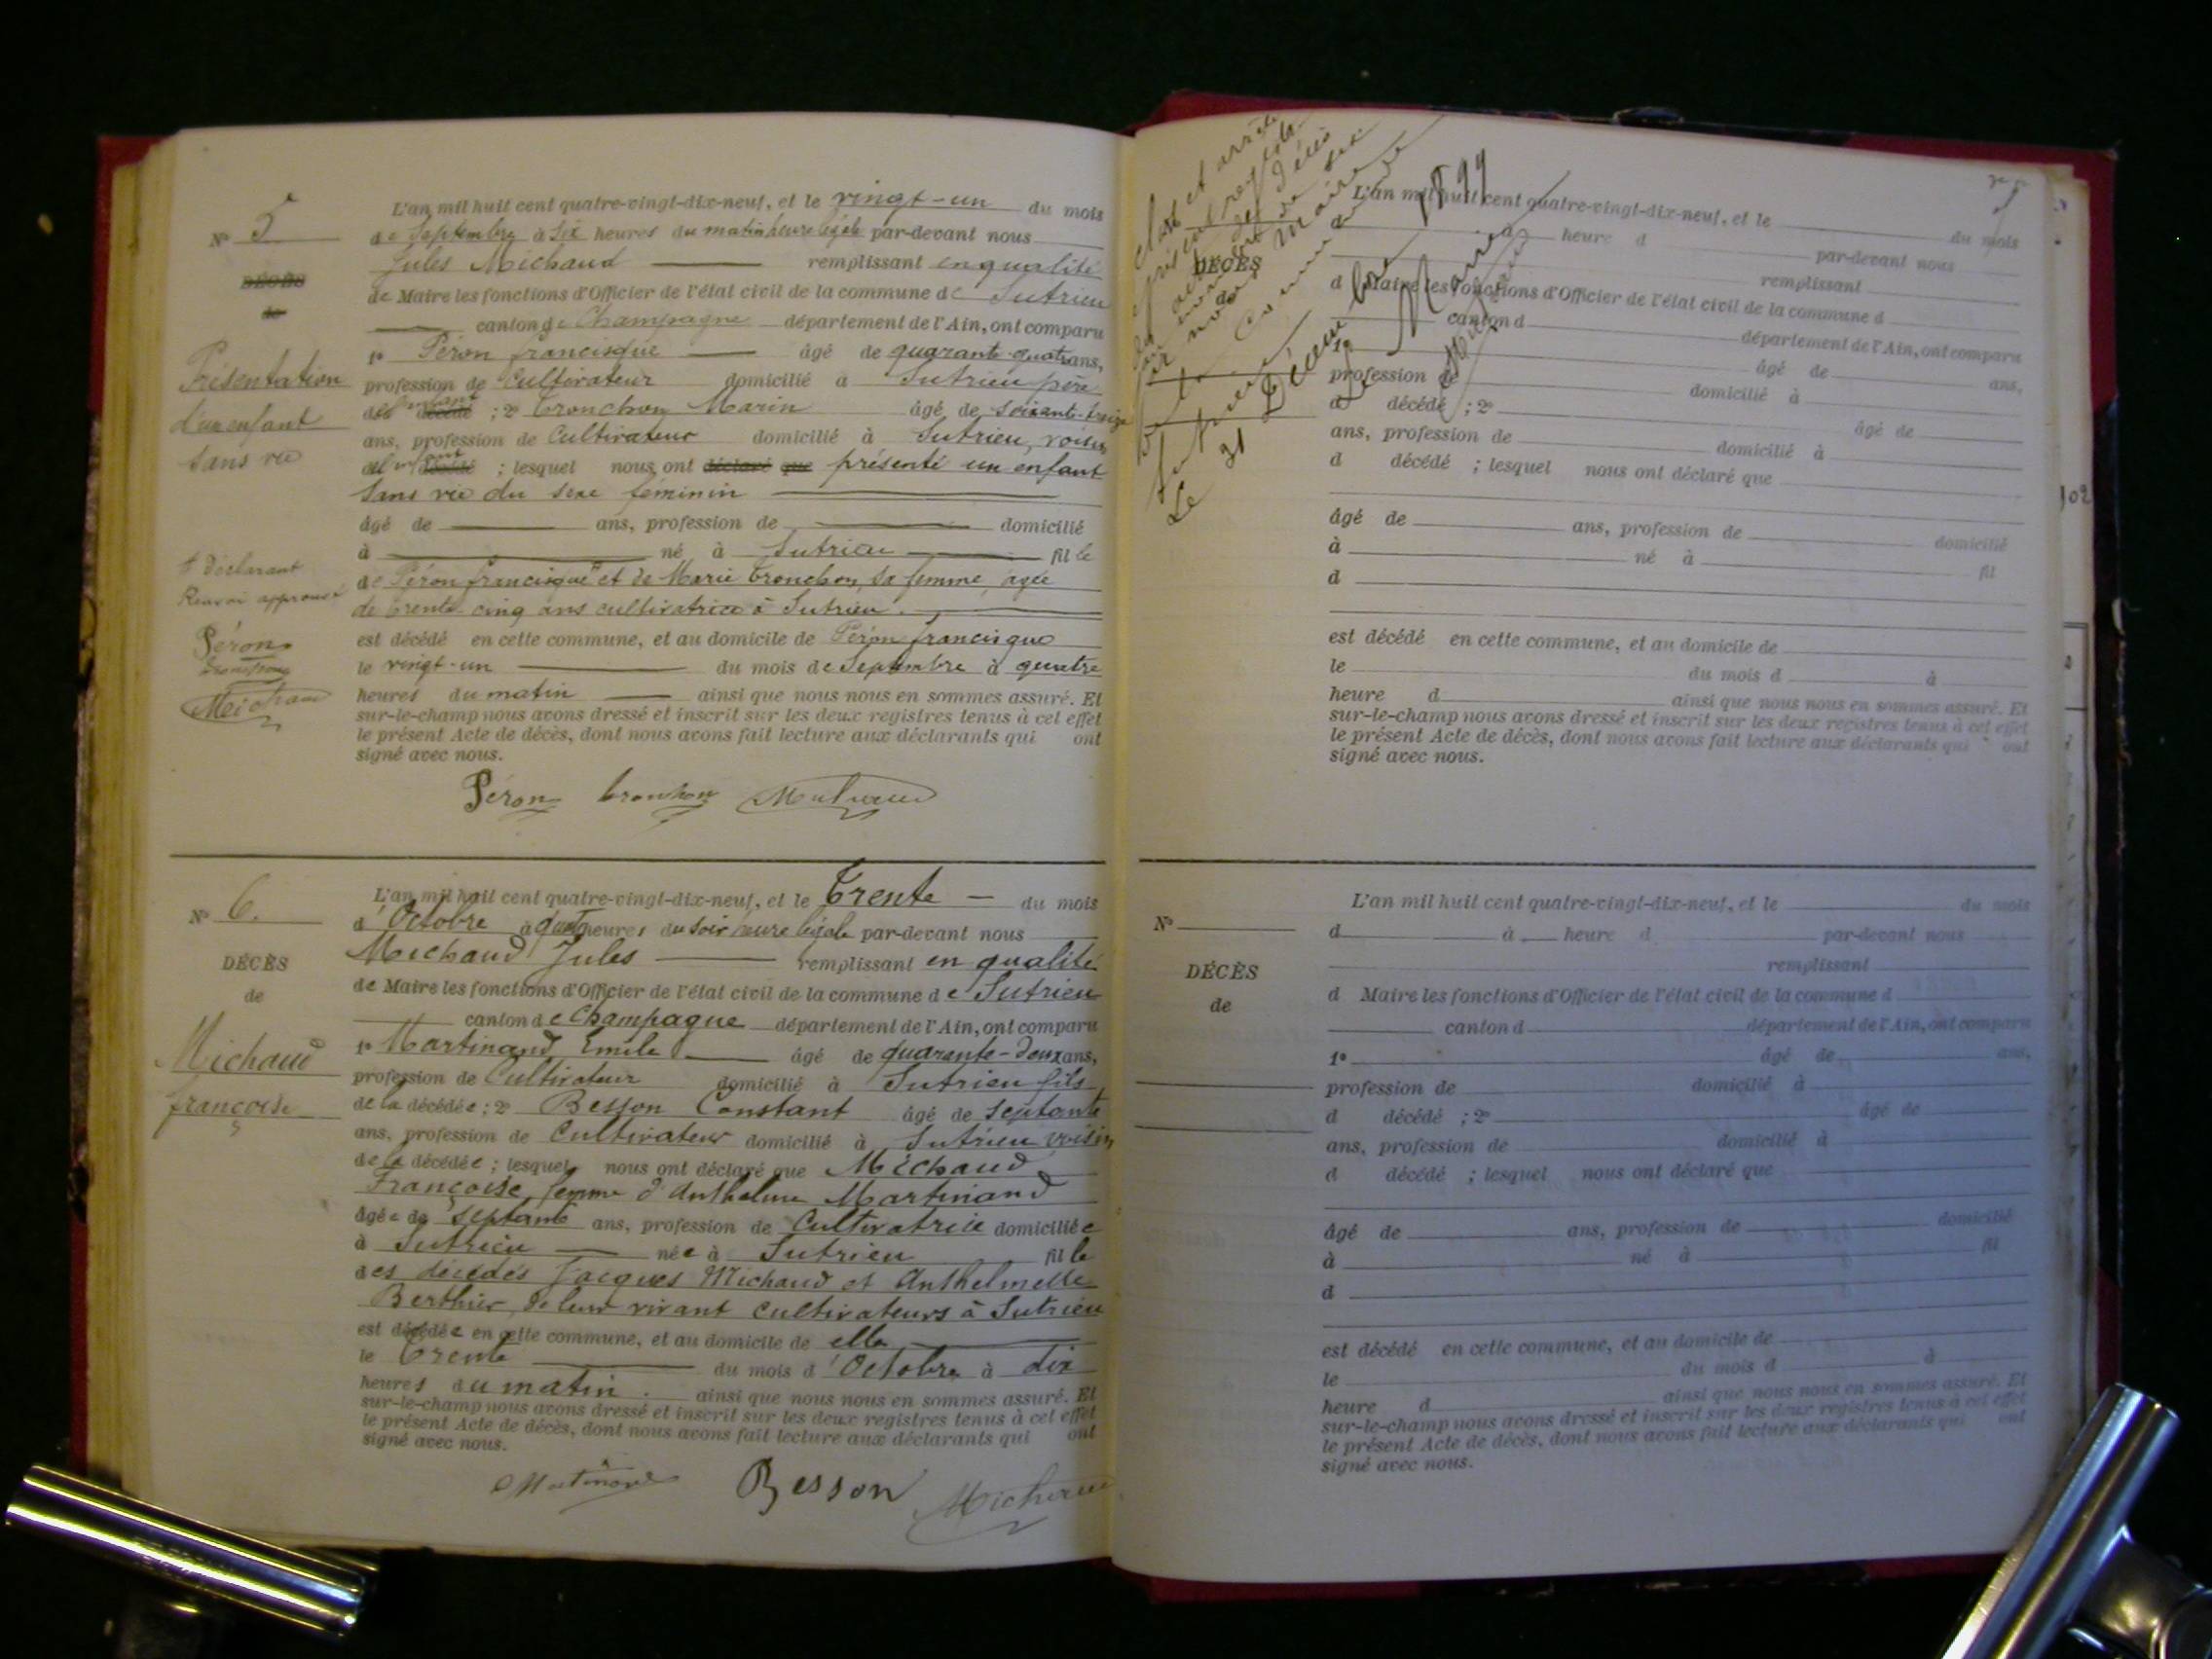 L'an mil huit cent quatre-vingt-dix-neuf, et le vingt-un du mois
N° 5
de Septembre à Six heures du matin heure légale par-devant nous
Jules Michaud remplissant en qualité
DÉCÈS
de Maire les fonctions d'Officier de l'état civil de la commune de Sutrieu
de
canton de Champagne département de l'Ain, ont comparu
1° Péron francisque âgé de quarante-quatre ans,
Présentation
profession de Cultivateur domicilié à Sutrieu père
d'un enfant
de l'enfant décédé ; 2° Tronchon Marin âgé de soixante-treize
ans, profession de Cultivateur domicilié à Sutrieu, voisin
sans vie
de l'enfant décédé ; lesquel nous ont déclaré que présenté un enfant
Sans vie du sexe féminin
âgé de ans, profession de domicilié
à né à Sutrieu fille
déclarant
de Péron francisque et de Marie Tronchon, sa femme, agée
Renvoi approuvé
de trente-cinq ans cultivatrice à Sutrieu.
Péron
est décédé en cette commune, et au domicile de Péron francisque
Tronchon
le vingt-un du mois de Septembre à quatre
Michaud
heures du matin ainsi que nous nous en sommes assuré. Et
sur-le-champ nous avons dressé et inscrit sur les deux registres tenus à cet effet
le présent Acte de décès, dont nous avons fait lecture aux déclarants qui ont
signé avec nous.
Péron Tronchon Michaud
L'an mil huit cent quatre-vingt-dix-neuf, et le Trente du mois
N° 6.
d'Octobre à quatre heures du soir heure légale par-devant nous
Michaud Jules remplissant en qualité
DÉCÈS
de Maire les fonctions d'Officier de l'état civil de la commune de Sutrieu
de
canton de Champagne département de l'Ain, ont comparu
Michaud
1° Martinand Emile âgé de quarante-deux ans,
profession de Cultivateur domicilié à Sutrieu fils
françoise
de la décédée ; 2° Besson Constant âgé de septante
ans, profession de Cultivateur domicilié à Sutrieu voisin
de la décédée ; lesquel nous ont déclaré que Michaud
Françoise, femme d'Anthelme Martinand
âgée de septante ans, profession de Cultivatrice domiciliée
à Sutrieu née à Sutrieu fille
des décédés Jacques Michaud et Anthelmette
Berthier, de leur vivant cultivateurs à Sutrieu
est décédée en cette commune, et au domicile de elle
le Trente du mois d'Octobre à dix
heures du matin. ainsi que nous nous en sommes assuré. Et
sur-le-champ nous avons dressé et inscrit sur les deux registres tenus à cet effet
le présent Acte de décès, dont nous avons fait lecture aux déclarants qui ont
signé avec nous.
Martinand Besson Michaud
Clos et arrêté
le présent registre
des actes de décès
au nombre de six
par nous Maire
de la Commune de
Sutrieu
Le 31 Décembre 1899
Le Maire
Michaud
L'an mil huit cent quatre-vingt-dix-neuf, et le du mois
d à heure d par-devant nous
DÉCÈS
remplissant
de
d Maire les fonctions d'Officier de l'état civil de la commune d
canton d département de l'Ain, ont comparu
1° âgé de ans,
profession de domicilié à
d décédé ; 2° âgé de
ans, profession de domicilié à
d décédé ; lesquel nous ont déclaré que
âgé de ans, profession de domicilié
à né à fil
d
est décédé en cette commune, et au domicile de
le du mois d à
heure d ainsi que nous nous en sommes assuré. Et
sur-le-champ nous avons dressé et inscrit sur les deux registres tenus à cet effet
le présent Acte de décès, dont nous avons fait lecture aux déclarants qui ont
signé avec nous.
L'an mil huit cent quatre-vingt-dix-neuf, et le du mois
N°
d à heure d par-devant nous
remplissant
DÉCÈS
d Maire les fonctions d'Officier de l'état civil de la commune d
de
canton d département de l'Ain, ont comparu
1° âgé de ans,
profession de domicilié à
d décédé ; 2° âgé de
ans, profession de domicilié à
d décédé ; lesquel nous ont déclaré que
âgé de ans, profession de domicilié
à né à fil
d
est décédé en cette commune, et au domicile de
le du mois d à
heure d ainsi que nous nous en sommes assuré. Et
sur-le-champ nous avons dressé et inscrit sur les deux registres tenus à cet effet
le présent Acte de décès, dont nous avons fait lecture aux déclarants qui ont
signé avec nous.